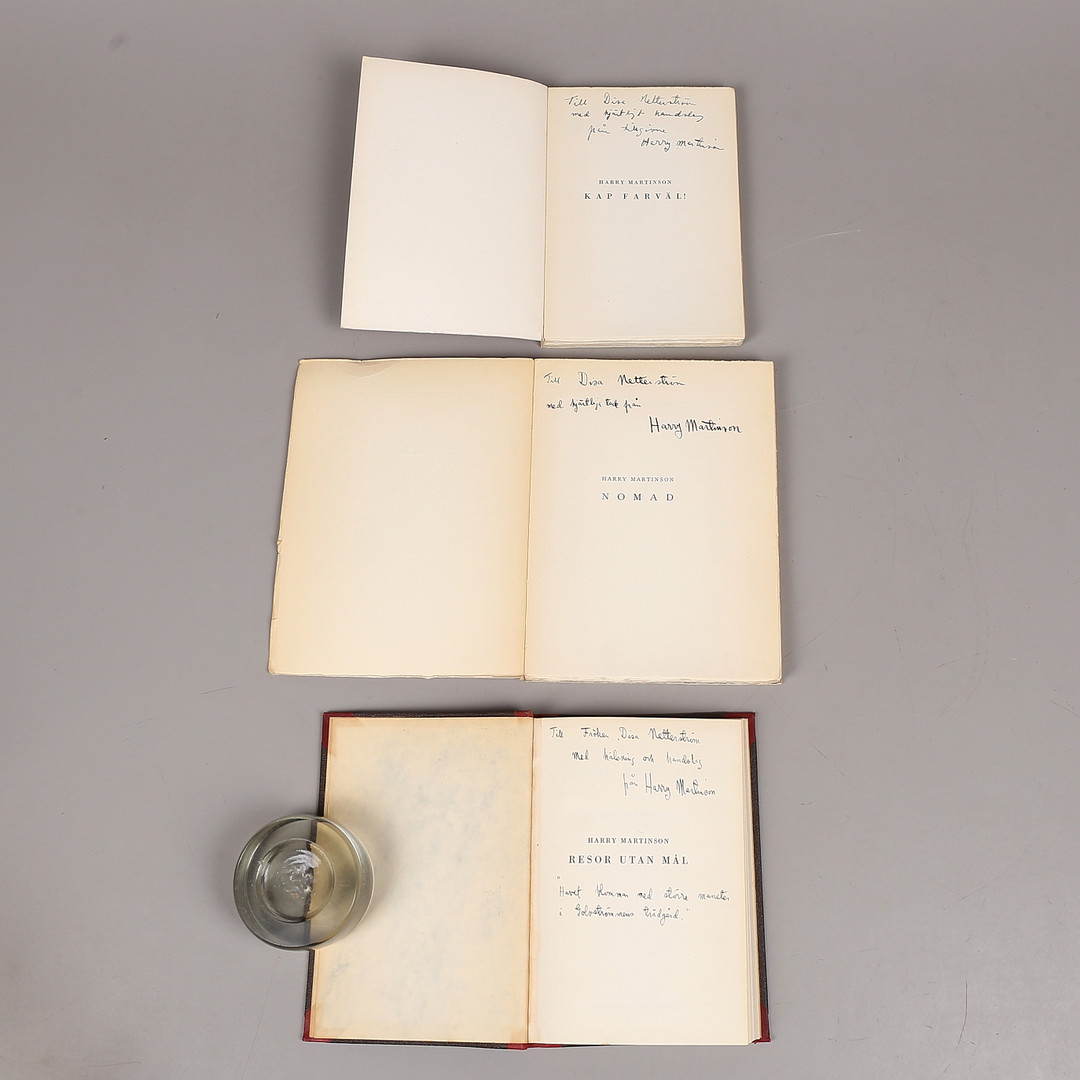 Till Disa Netterström
med hjärtligt handslag
från tillgivne
Harry Martinson
HARRY MARTINSON
KAP FARVÄL!
Till Disa Netterström
med hjärtligt tack från
Harry Martinson
HARRY MARTINSON
NOMAD
Till Fröken Disa Netterström
med hälsning och handslag
från Harry Martinson
HARRY MARTINSON
RESOR UTAN MÅL
"Havet blommar med större maneter
i Golvströmmens trädgård."